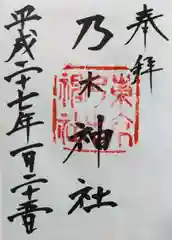 奉拝
乃木神社
平成二十七年一月二十五日